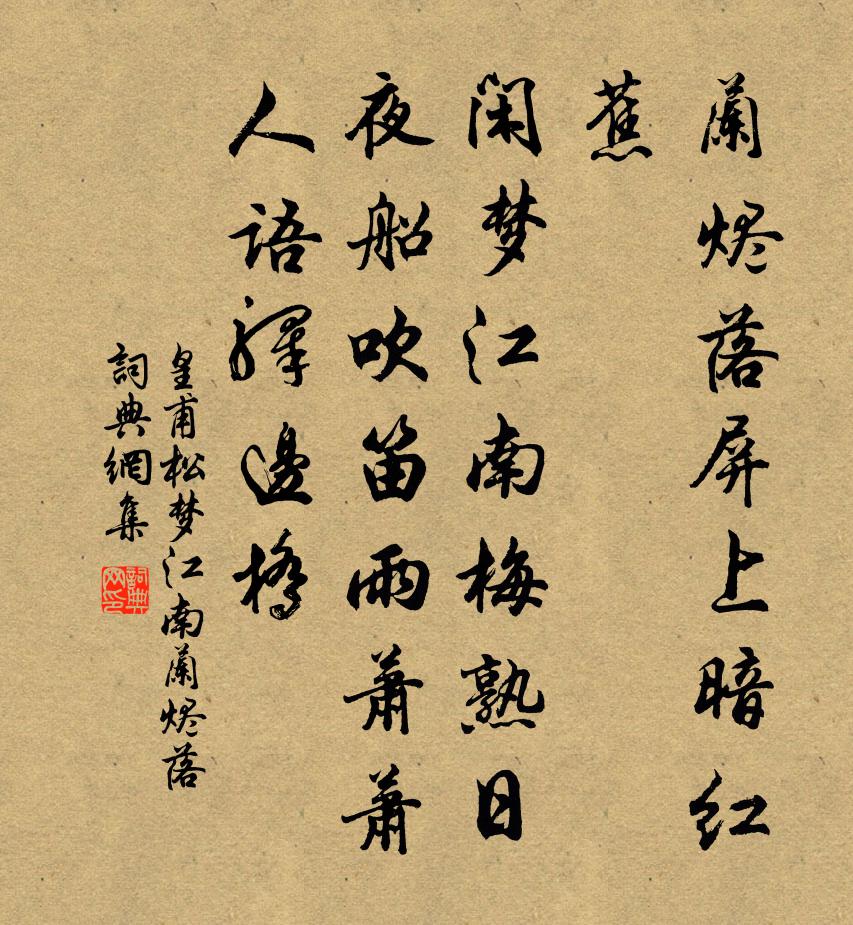 蘭烬落屏上暗红
蕉
闲梦江南梅熟日
夜船吹笛雨萧萧
人语驿邊橋
皇甫松梦江南蘭烬落
詞典網集
詞典网印